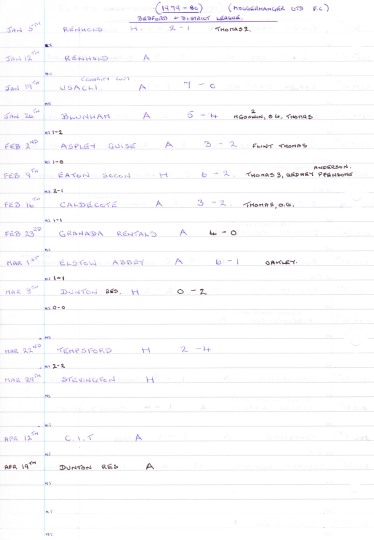 (1979-80) (MOGGERHANGER UTD F.C)
BEDFORD + DISTRICT LEAGUE.
JAN 5TH RENHOLD H. 2-1 THOMAS 2.
JAN 12TH RENHOLD A
(COUNTY CUP)
JAN 19TH A 7-0
JAN 26TH BLUNHAM A 5-4 2, O.G, THOMAS
H.T. 1-2
FEB 2ND ASPLEY GUISE A 3-2 FLINT THOMAS
H.T. 1-0
ANDERSON.
FEB 9TH EATON SOCON H 6-2. THOMAS 3,
H.T. 2-1
FEB 16TH CALDECOTE A 3-2. THOMAS, O.G.
H.T. 1-1
FEB 23RD GRANADA RENTALS A 4-0
MAR 1ST ELSTOW ABBEY A 6-1 OAKLEY.
H.T. 1-1
MAR DUNTON RES. H 0-2
H.T. 0-0
MAR 22ND TEMPSFORD H 2-4
H.T. 2-2
MAR 29TH STEVINGTON H
APR 12TH C.I.T A
APR 19TH DUNTON RES A